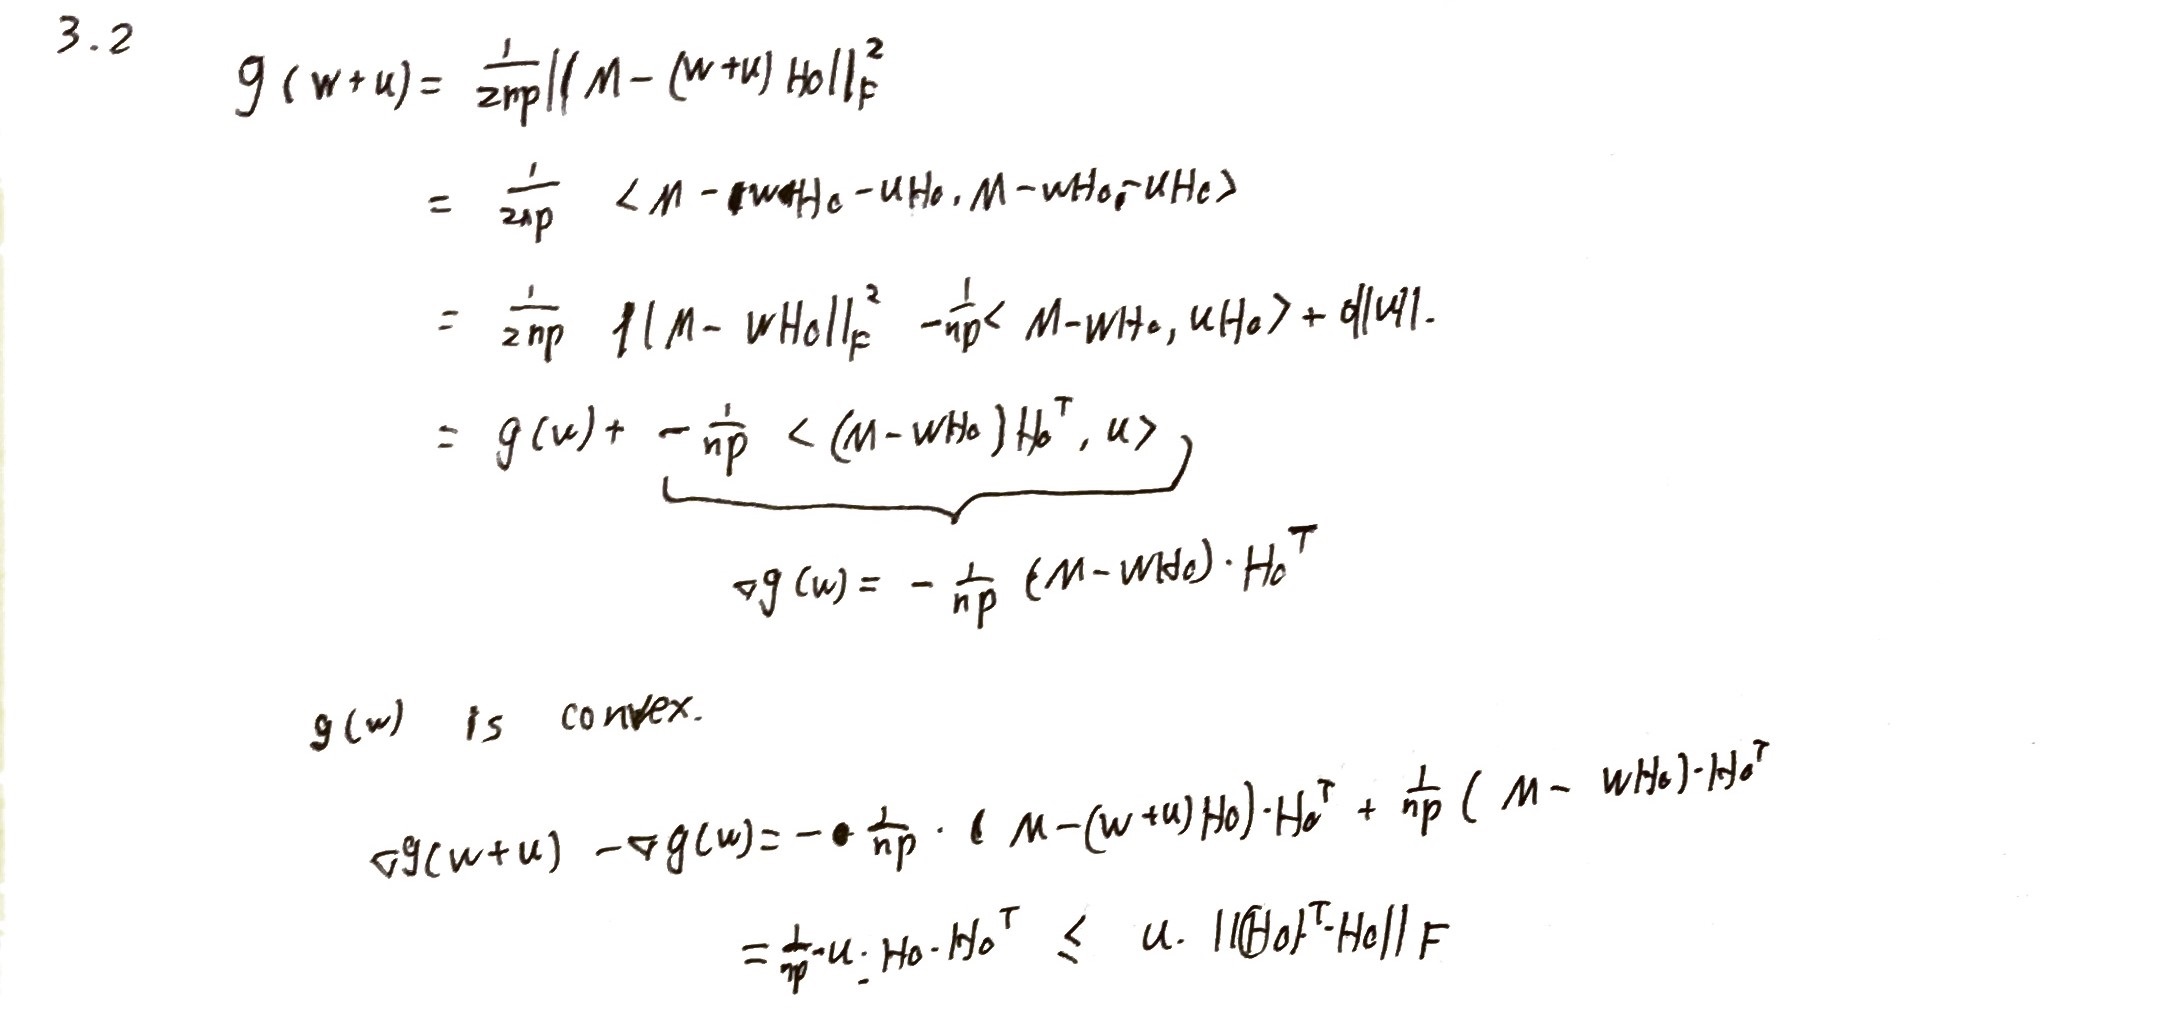 3.2
g(w+u) = 1/2np ||M - (w+u)H₀||_F^2
= 1/2np <M - wH₀ - uH₀, M - wH₀ - uH₀>
= 1/2np ||M - wH₀||_F^2 - 1/np < M-wH₀, uH₀> + o||u||.
= g(w) + - 1/np < (M-wH₀)H₀^T, u>
∇g(w) = - 1/np (M-wH₀)·H₀^T
g(w) is convex.
∇g(w+u) - ∇g(w) = - 1/np · (M-(w+u)H₀)·H₀^T + 1/np (M- wH₀)·H₀^T
= 1/np·u·H₀·H₀^T ≤ u. ||(H₀)^T·H₀||_F